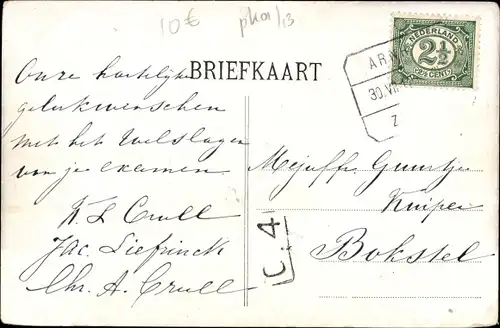 10€
pk01/13
BRIEFKAART
NEDERLAND
2½
2½ CENT
30.VII
Z
Onze hartelijke
gelukwenschen
met het welslagen
van je examen
K L Crull
Jac. Liefrinck
Chr. A. Crull
Mejuffr. Guurtje
Kuiper
Bokstel
C. 4